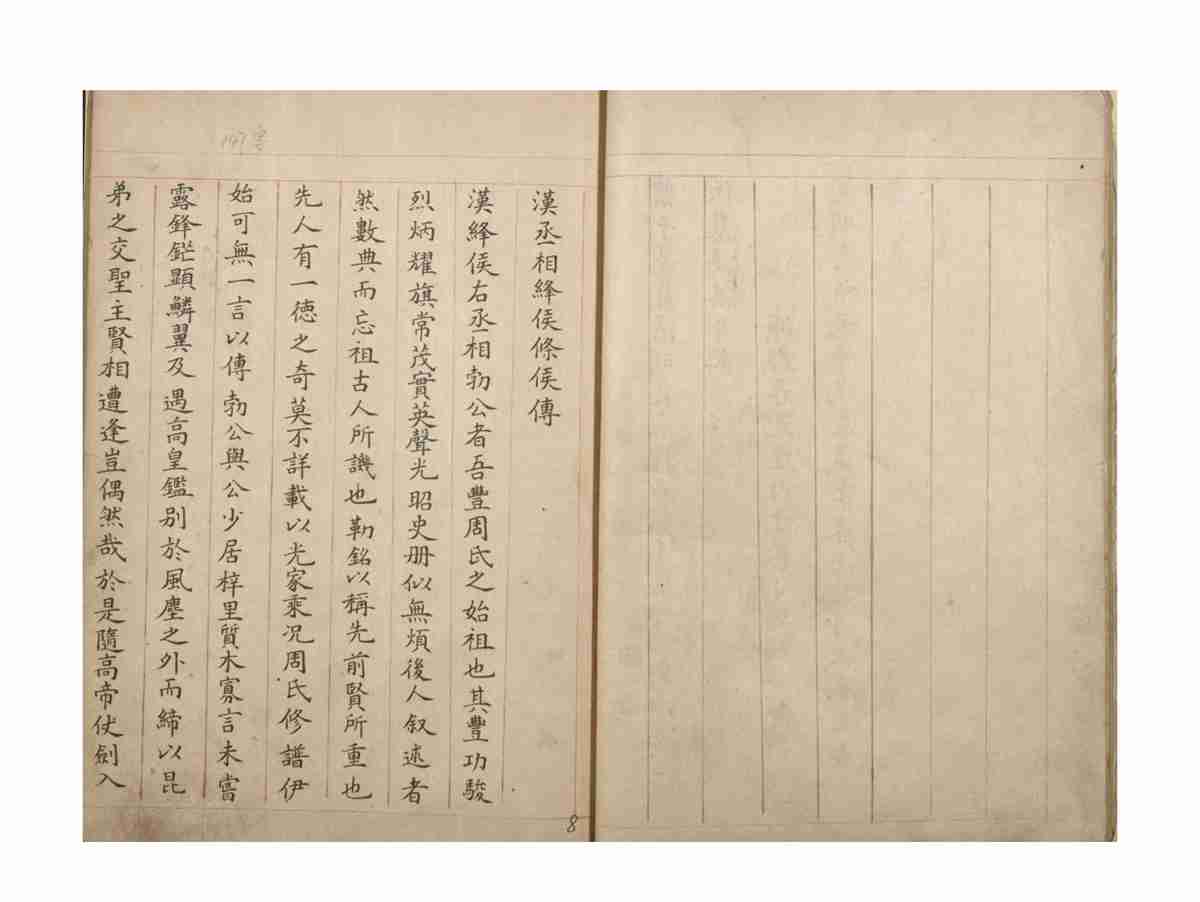 漢丞相絳侯條侯傳
漢絳侯右丞相勃公者吾豐周氏之始祖也其豐功駿
烈炳耀旗常茂實英聲光昭史册似無煩後人叙述者
然數典而忘祖古人所譏也勒銘以稱先前賢所重也
先人有一徳之奇莫不詳載以光家乘况周氏修譜伊
始可無一言以傳勃公與公少居梓里質木寡言未嘗
露鋒鋩顯鱗翼及遇高皇鑑别於風塵之外而締以昆
弟之交聖主賢相遭逢豈偶然哉於是隨高帝仗劍入
8